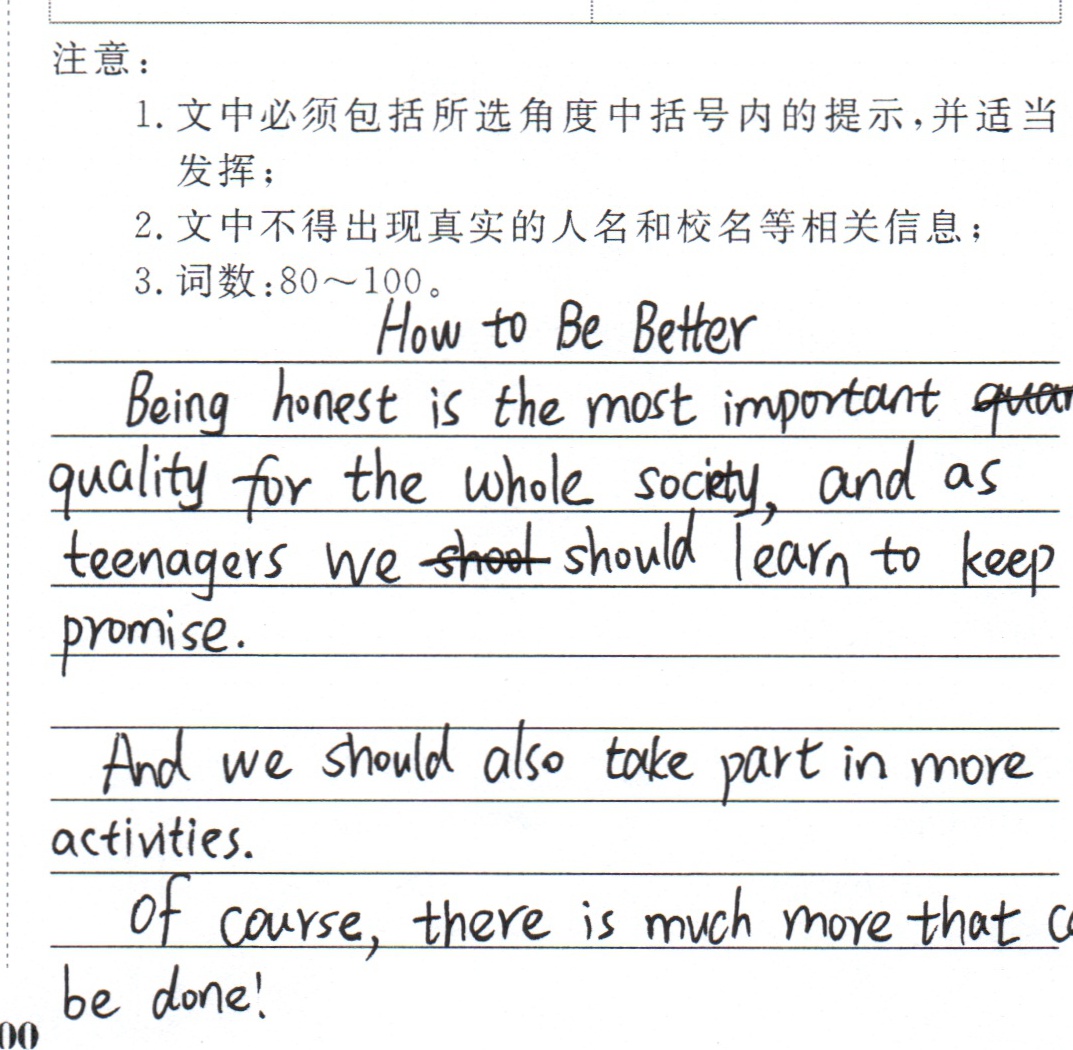 注意：
1. 文中必须包括所选角度中括号内的提示，并适当
发挥；
2. 文中不得出现真实的人名和校名等相关信息；
3. 词数：80～100。
How to Be Better
Being honest is the most important
quality for the whole society, and as
teenagers we should learn to keep
promise.
And we should also take part in more
activities.
Of course, there is much more that
be done!
00